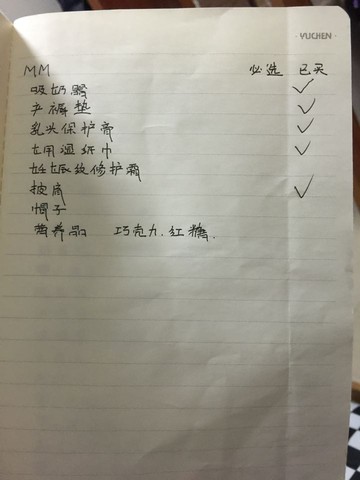 · YUCHEN ·
MM 必选 已买
吸奶器 ✓
产褥垫 ✓
乳头保护膏 ✓
女用湿纸巾 ✓
妊娠纹修护霜
披肩 ✓
帽子
营养品 巧克力.红糖.